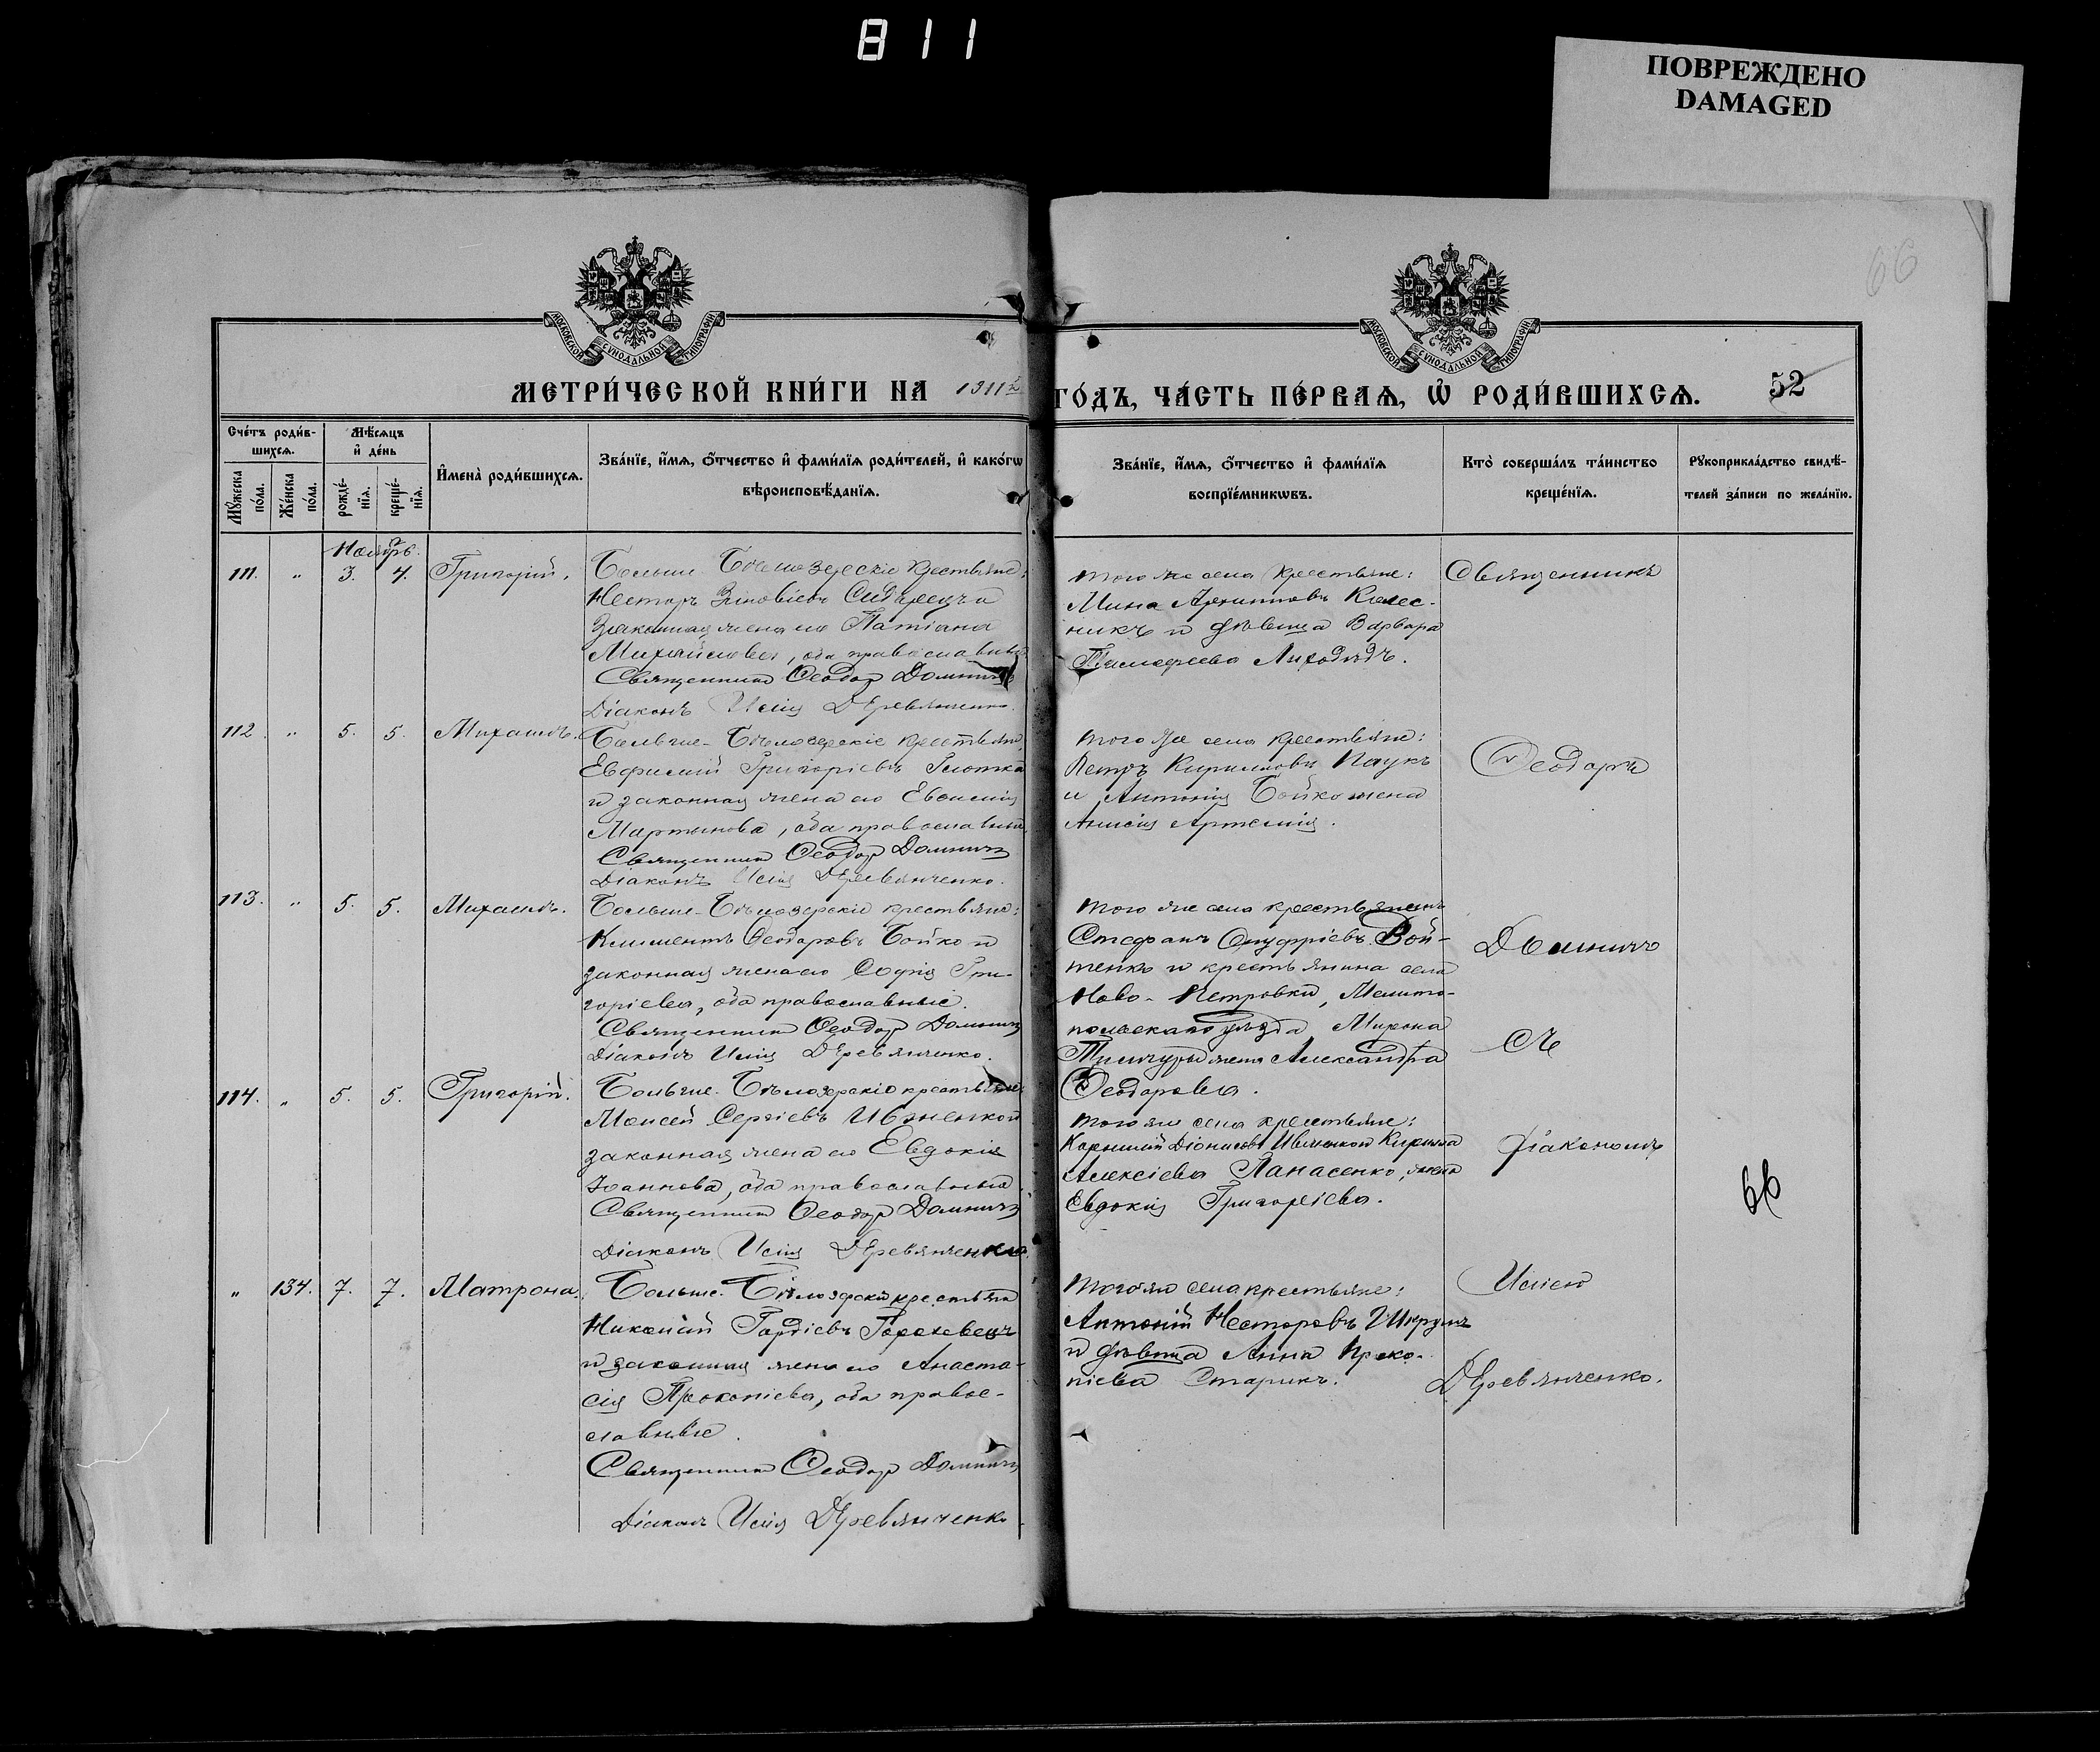 811
ПОВРЕЖДЕНО
DAMAGED
66
МОСКОВСКОЙ СѴНОДАЛЬНОЙ ТИПОГРАФІИ
МОСКОВСКОЙ СѴНОДАЛЬНОЙ ТИПОГРАФІИ
МЕТРИ́ЧЕСКОЙ КНИ́ГИ НА 1911 ГО́ДЪ, ЧА́СТЬ ПЕ́РВАѦ, Ѡ҆ РОДИ́ВШИХСѦ.
52
Сче́тъ роди́в-
шихсѧ.
Мѣ́сѧцъ
и҆ де́нь
Мꙋ́жеска по́ла.
Же́нска по́ла.
рожде́-
нїѧ.
креще́-
нїѧ.
И҆мена̀ роди́вшихсѧ.
Зва́нїе, и҆́мѧ, ѻ҆́тчество и҆ фами́лїѧ роди́телей, и҆ како́гѡ
вѣроисповѣ́данїѧ.
Зва́нїе, и҆́мѧ, ѻ҆́тчество и҆ фами́лїѧ
воспрїе́мникѡвъ.
Кто̀ соверша́лъ та́инство
креще́нїѧ.
Рꙋкоприкла́дство свидѣ́-
телей за́писи по жела́нїю.
Ноябрь.
111. " 3. 4. Григорій.
Больше-Бѣлозерскіе крестьяне:
Несторъ Зиновіевъ Сидарец и
законная жена его Татіана
Михайлова, оба православные
Священникъ Ѳеодор Домнич
Діаконъ Исаія Деревянченко.
того же села крестьяне:
Мина Архиповъ Колес-
никъ и дѣвица Варвара
Тимоѳеева Лиходѣдъ.
112. " 5. 5. Михаилъ.
Больше-Бѣлозерскіе крестьяне
Евфимій Григоріевъ Глотка
и законная жена его Евѳимія
Мартынова, оба православные
Священникъ Ѳеодор Домнич
Діаконъ Исаія Деревянченко.
того же села крестьяне:
Петръ Кирилловъ Паукъ
и Антонія Бойко жена
Анисія Артемія.
113. " 5. 5. Михаилъ.
Больше-Бѣлозерскіе крестьяне:
Климентъ Ѳеодоровъ Бойко и
законная жена его Софія Гри-
горіева, оба православные.
Священникъ Ѳеодор Домнич
Діаконъ Исаія Деревянченко.
того же села крестьянинъ
Стефанъ Онуфріевъ Вой-
тенко и крестьянина села
Ново-Петровки, Мелито-
польскаго уѣзда Мирона
жена Александра
Ѳеодорова.
114. " 5. 5. Григорій.
Больше-Бѣлозерскіе крестьяне
Моисей Сергіевъ Ивженко и
законная жена его Евдокія
Іоаннова, оба православные.
Священникъ Ѳеодор Домнич
Діаконъ Исаія Деревянченко.
того же села крестьяне:
Корнилій Діонисовъ Ивженко и Кирилла
Алексіева Панасенко, жена
Евдокія Григоріева.
" 134. 7. 7. Матрона.
Больше-Бѣлозерскіе крестьяне
Николай Гордіевъ
и законная жена его Анаста-
сія Прокопіева, оба право-
славные.
Священникъ Ѳеодор Домнич
Діаконъ Исаія Деревянченко
того же села крестьяне:
Антоній Несторовъ Шкрумъ
и дѣвица Анна Проко-
піева Старикъ.
Священникъ
Ѳеодоръ
Домничъ
съ
діакономъ
Исаіею
Деревянченко.
66